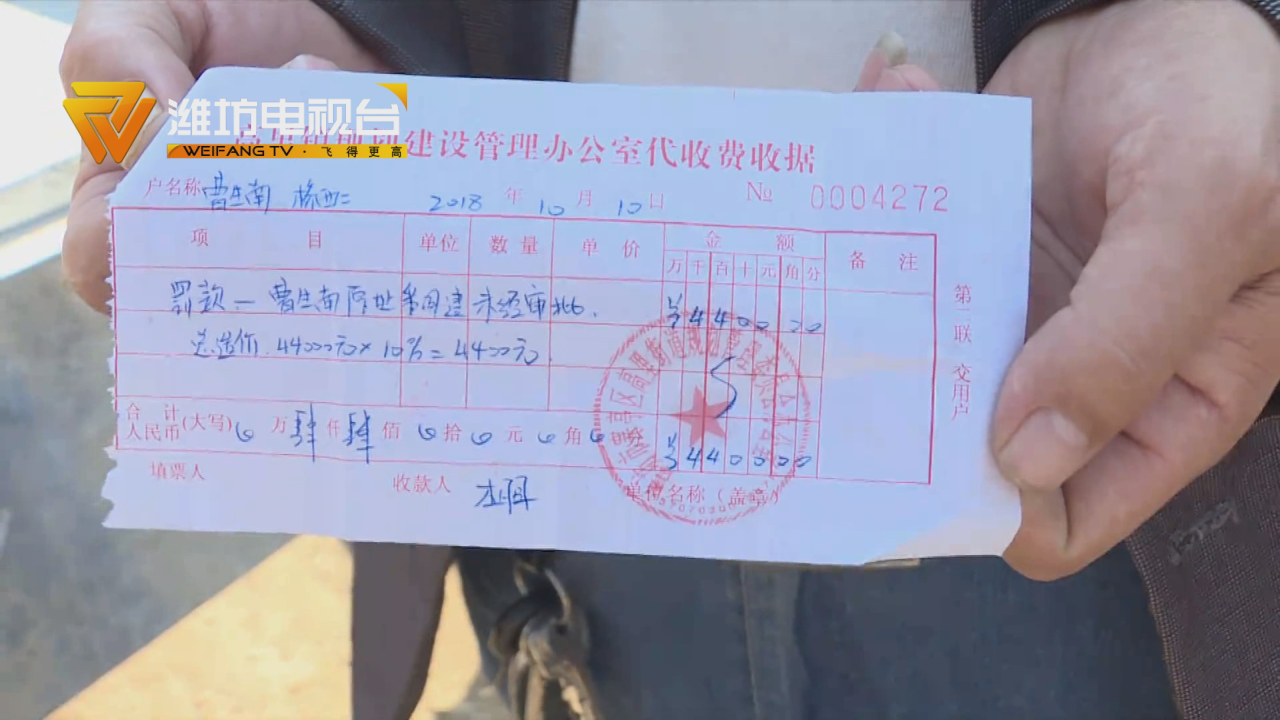 潍坊电视台
WEIFANG TV · 飞得更高
建设管理办公室代收费收据
户名称 曹生南 2018 年 10 月 10 日 № 0004272
项 目 单位 数量 单价 金 额 备 注
万 千 百 十 元 角 分
罚款一曹生南 未经审批. ¥4400 00
总造价. 44000元×10%=4400元.
合计人民币(大写) 万 肆 仟 肆 佰 拾 元 角 分 ¥4400 00
填票人 收款人 单位名称(盖章)
第二联 交用户